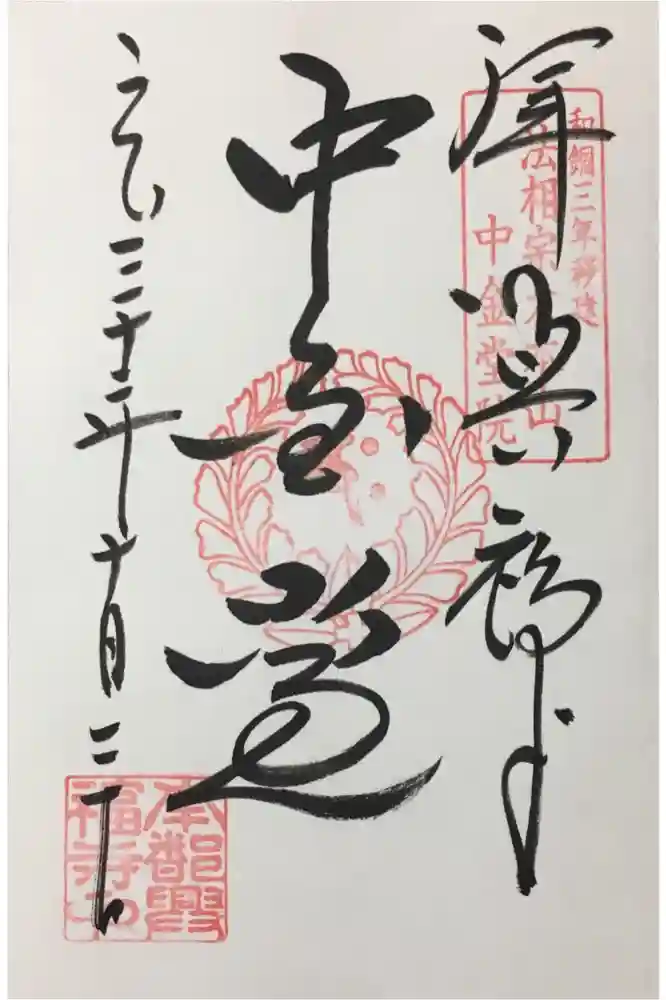 和銅三年移建
法相宗大本山
中金堂院
拝 興福寺
中金堂
平成三十年十月二十日
南都興
福寺印